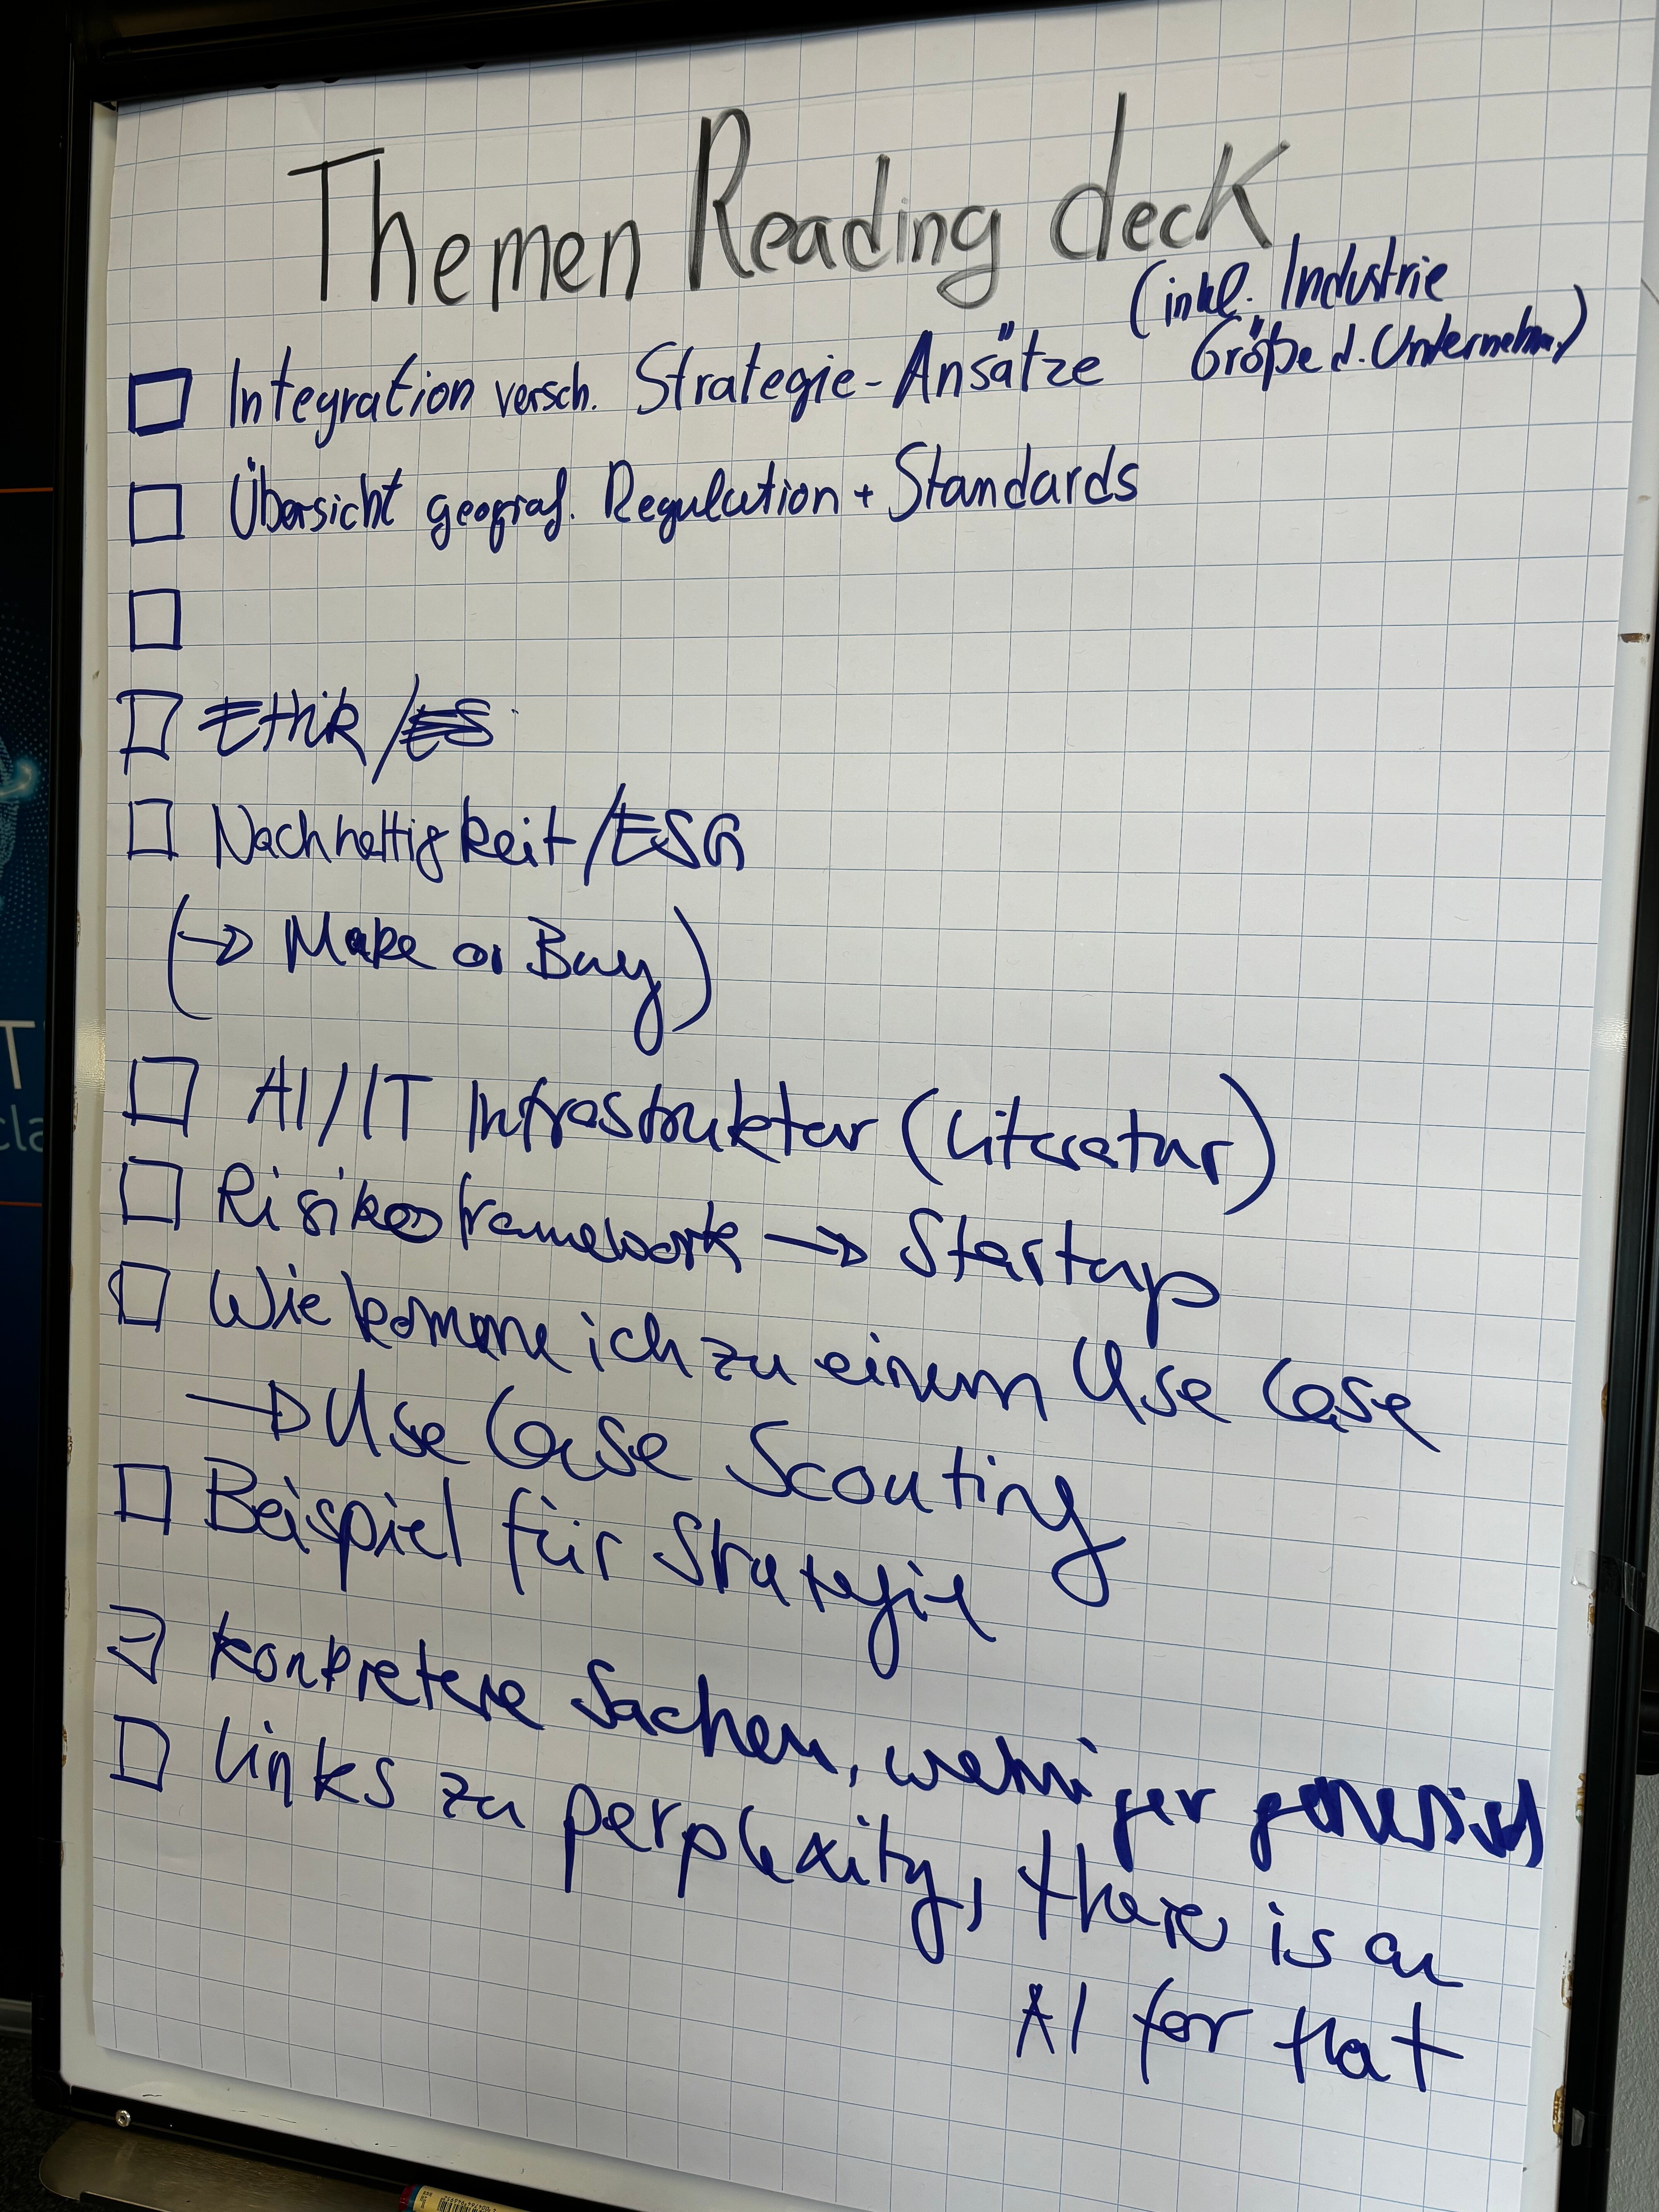 Themen Reading deck
(inkl. Industrie
Größe d. Unternehm.)
Integration versch. Strategie-Ansätze
Übersicht geograf. Regulation + Standards
Ethik /
Nachhaltigkeit/ESG
(→ Make or Buy)
AI/IT Infrastruktur (Literatur)
Risikoframework → Startup
Wie komme ich zu einem Use Case
→ Use Case Scouting
Beispiel für Strategie
konkretere Sachen, weniger generisch
Links zu perplexity, there is an
AI for that
T
cla